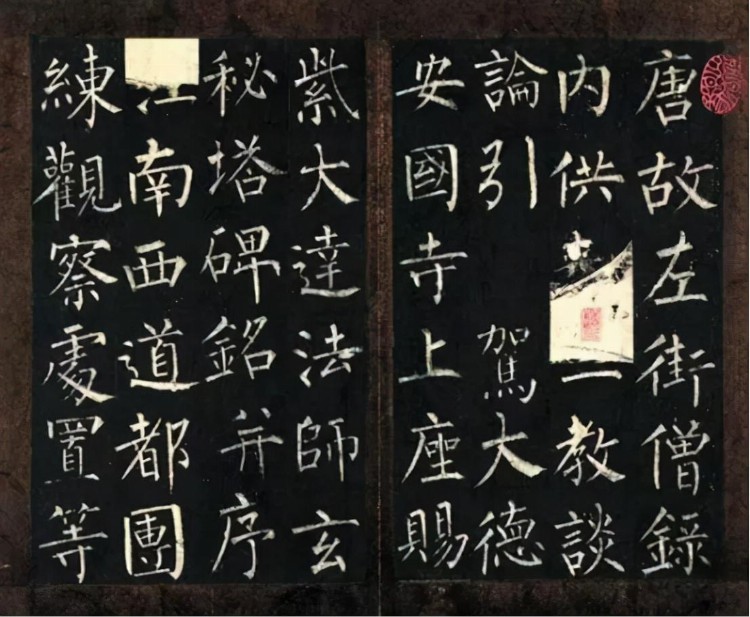 唐故左街僧錄
内供教談
論引駕大德
安國寺上座賜
紫大達法師玄
秘塔碑銘并序
江南西道都團
練觀察處置等